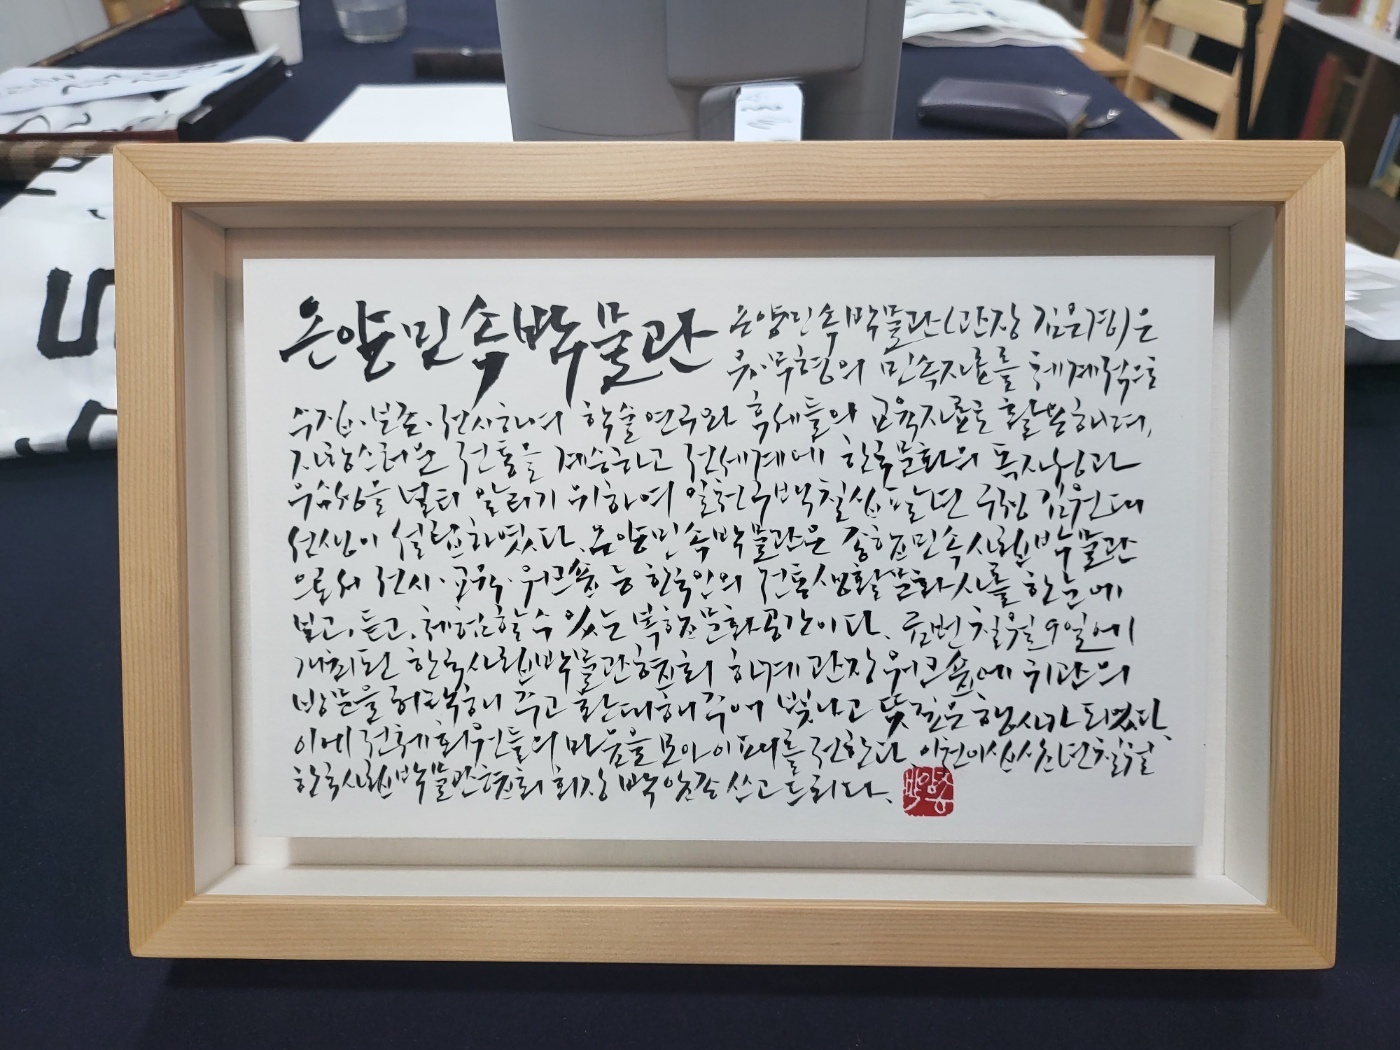 온양민속박물관 온양민속박물관(관장 김은경)은
유·무형의 민속자료를 체계적으로
수집·보존·전시하여 학술연구와 후세들의 교육자료로 활용하며,
자랑스러운 전통을 계승하고 전세계에 한국문화의 독자성과
우수성을 널리 알리기 위하여 일천구백칠십팔년 구정 김원대
선생이 설립하였다. 온양민속박물관은 종합민속사립박물관
으로써 전시·교육·워크숍 등 한국인의 전통생활문화사를 한눈에
보고, 듣고, 체험할 수 있는 복합문화공간이다. 금번 칠월 9일에
개최된 한국사립박물관협회 하계 관장 워크숍에 귀관의
방문을 허락해 주고 환대해 주어 빛나고 뜻깊은 행사가 되었다.
이에 전체 회원들의 마음을 모아 이 패를 전한다. 이천이십사년 칠월
한국사립박물관협회 회장 박암종 쓰고 드리다.
박암종